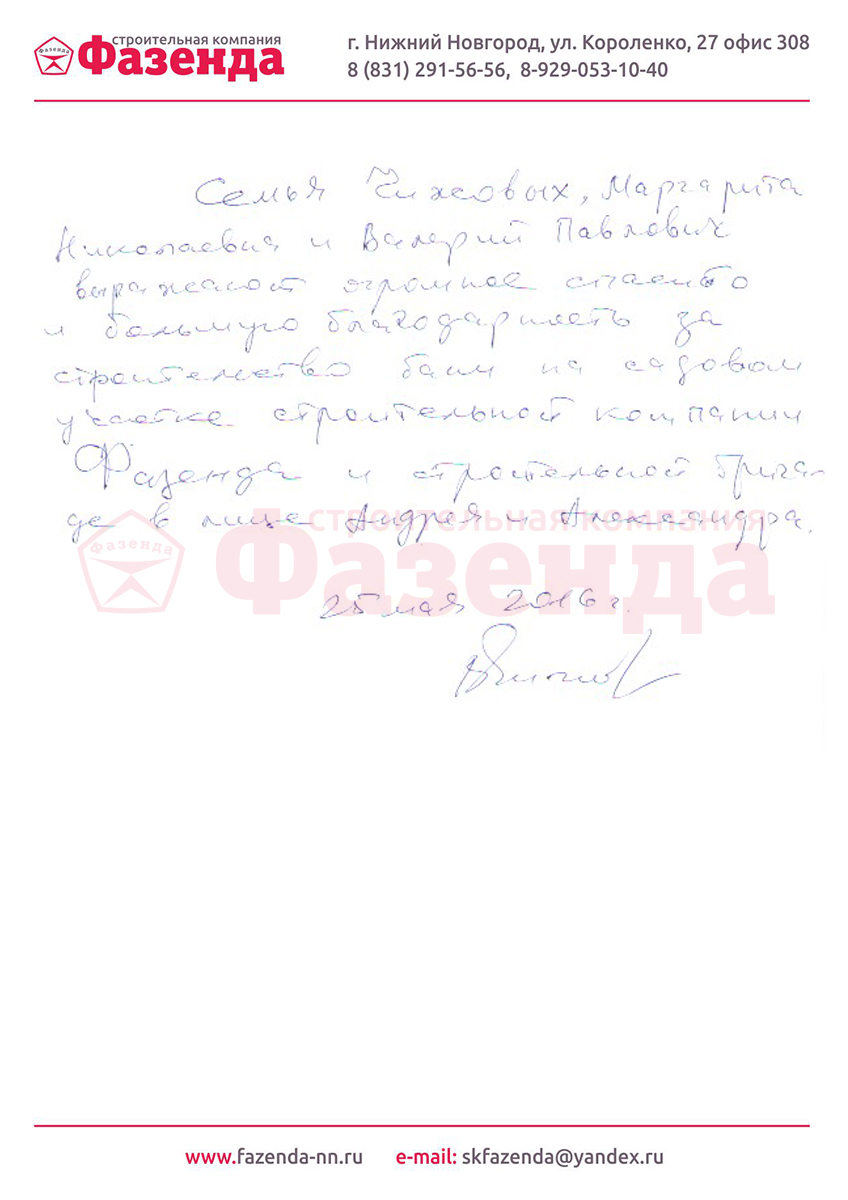 строительная компания
Фазенда
Фазенда
г. Нижний Новгород, ул. Короленко, 27 офис 308
8 (831) 291-56-56, 8-929-053-10-40
Семья Чижовых, Маргарита
Николаевна и Валерий Павлович
выражают огромное спасибо
и большую благодарность за
строительство бани на садовом
участке строительной компании
Фазенда и строительной брига-
де в лице Андрея и Александра.
строительная компания
Фазенда
Фазенда
25 мая 2016 г.
www.fazenda-nn.ru e-mail: skfazenda@yandex.ru